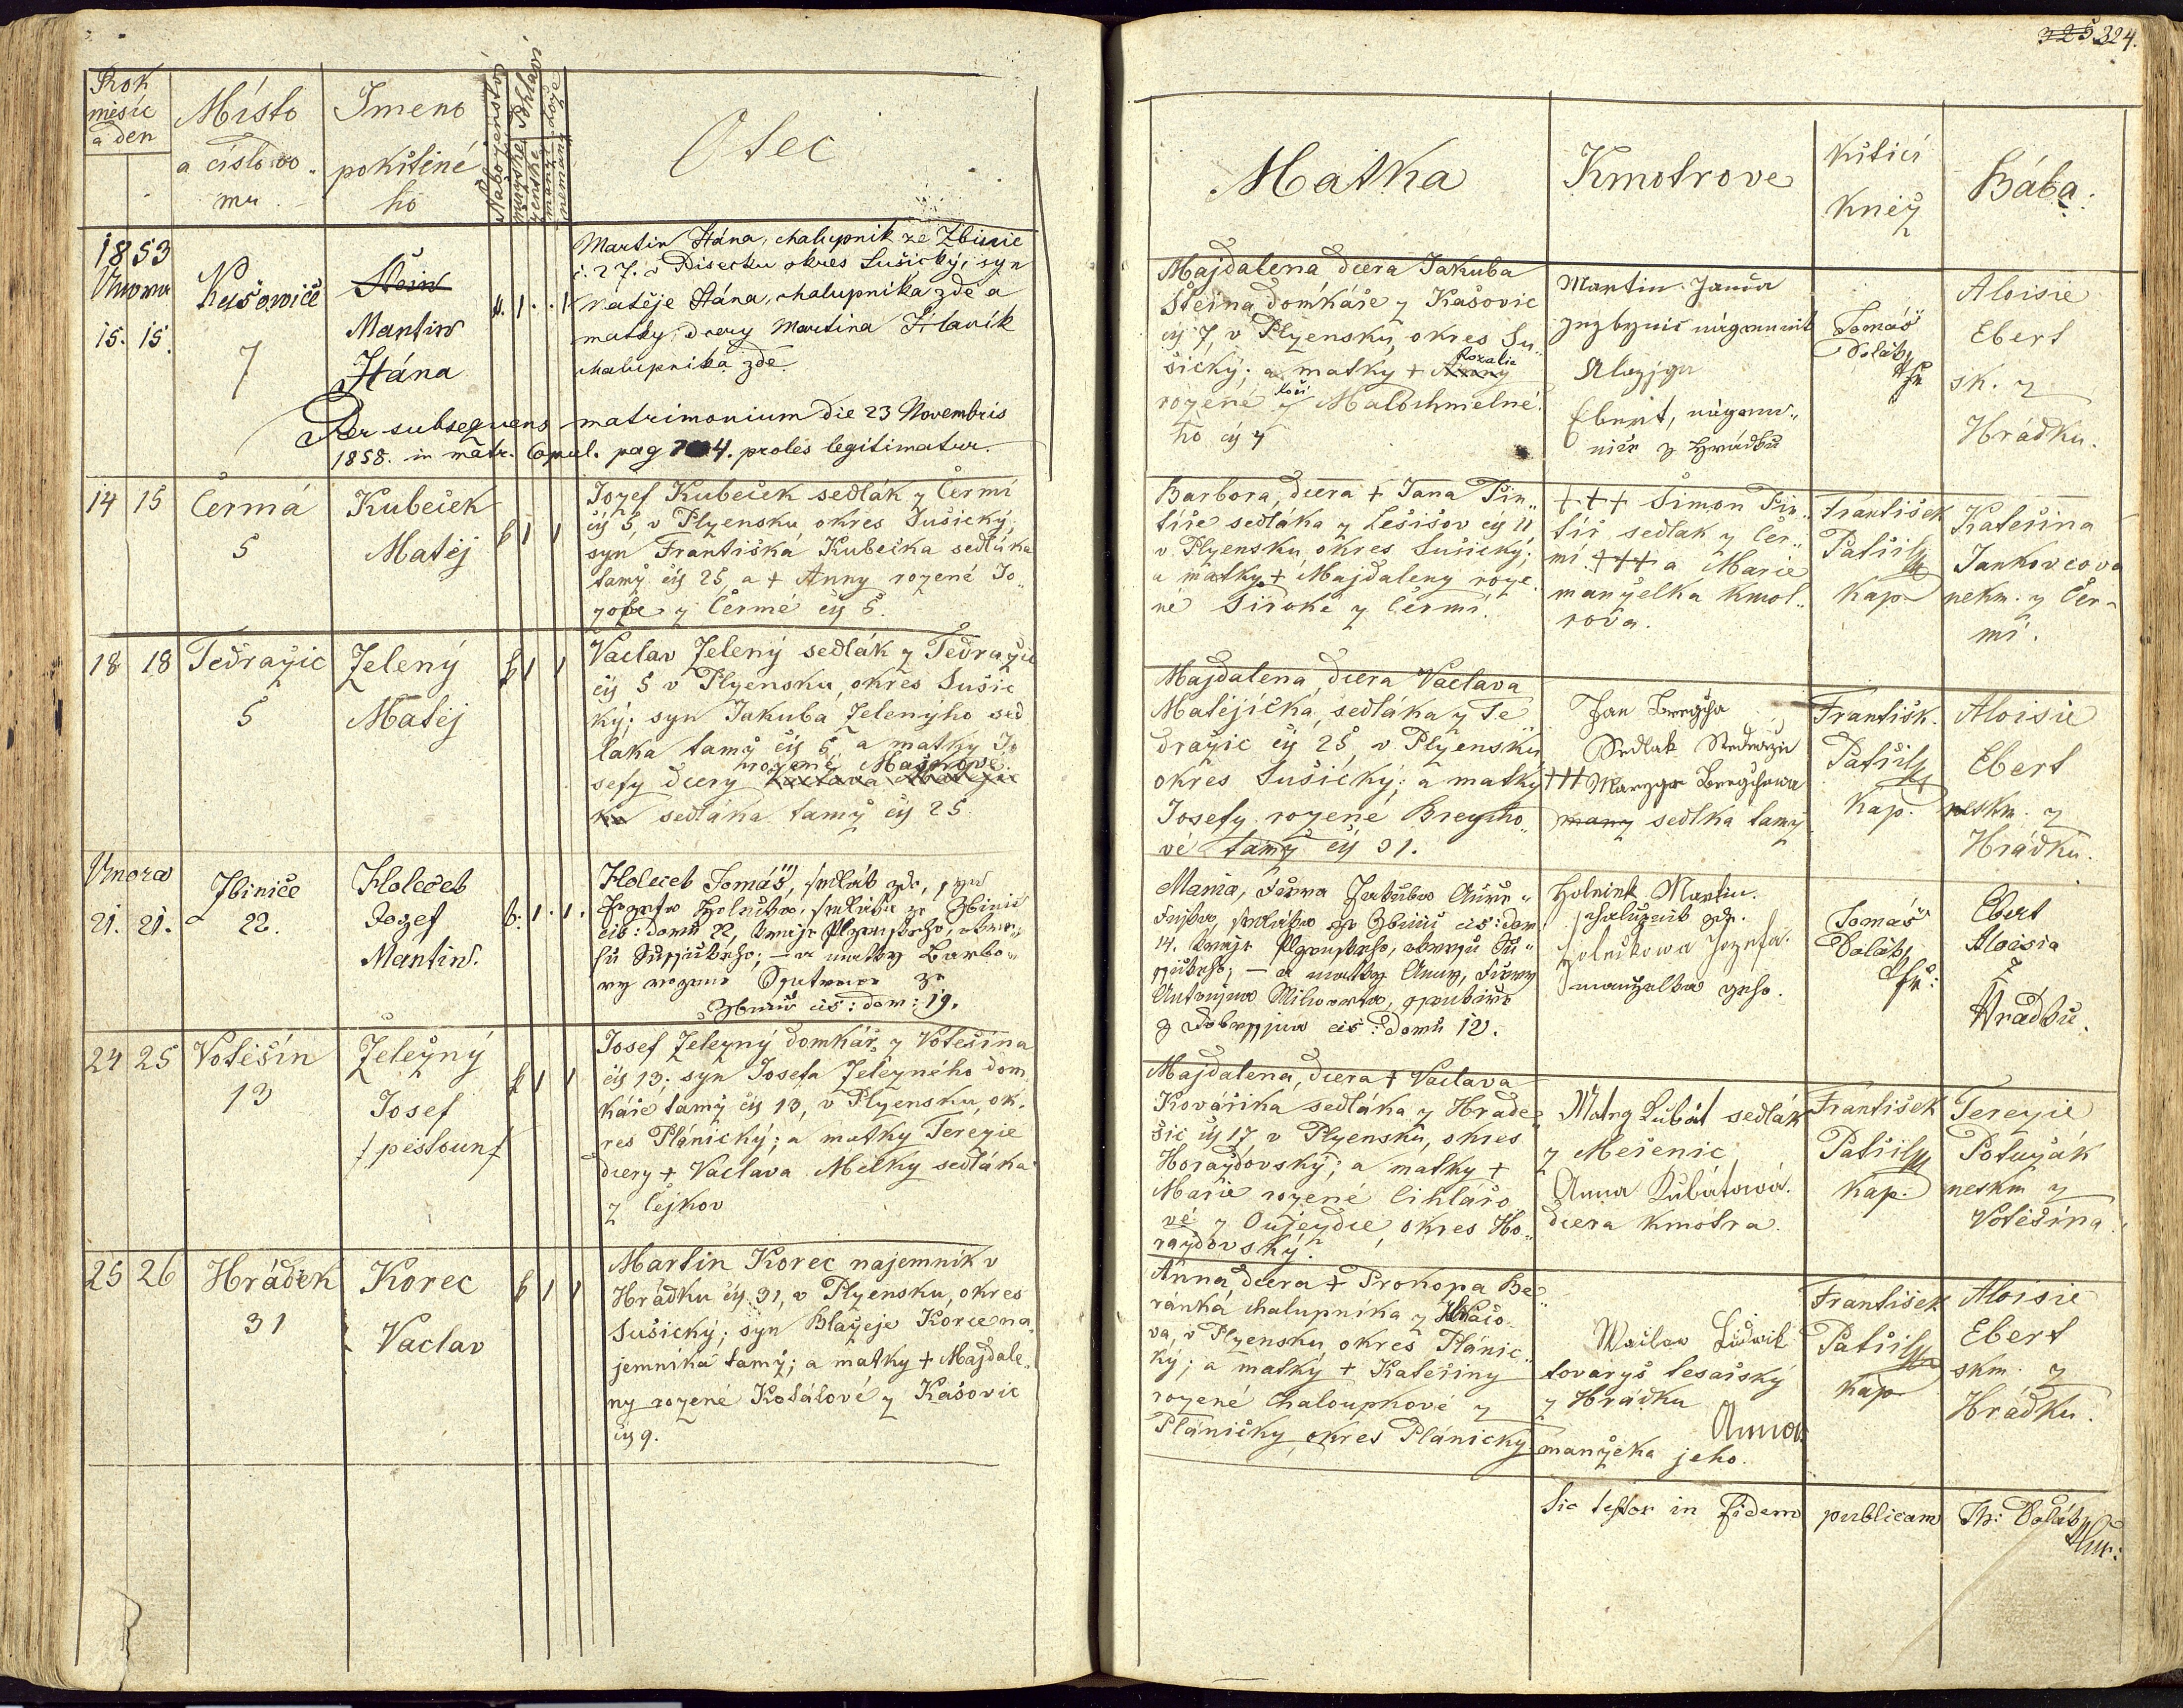 325 324.
Rok
měsíc
a den
Místo
a číslo do„
mu
Jmeno
pokřtěné
ho
Náboženství
Pohlaví
mužské
ženské
Otec
Matka
Kmotrove
Křtící
Kněz
Bába.
1853
Února
15. 15.
Kašowice
7
Štein
Martin
Hána
k. 1. . 1.
Martin Hána, chalupnik ze Zbinic
č. 27. v Pisecku okres Sušický, syn
Matěje Hána, chalupníka zde a
matky, dcery Martina Hlavik
chalupníka zde.
Per subsequens matrimonium die 23 Novembris
1858. in matr. Copul. pag 4. proles legitimatur.
Majdalena dcera Jakuba
Šteina domkáře z Kašovic
čís 7, v Plzensku, okres Su„
šický; a matky + Anny Rozalie
rozené z Malochmelné„
ho čís 4
Martin Janča
Ebert,
z Hrádku
Tomáš
Dolák
Aloisie
Ebert
sk. z
Hrádku.
14 15
Čermá
5
Kubeček
Matěj
k 1 1
Jozef Kubeček sedlák z Čermí
čís 5, v Plzensku okres Sušický,
syn Františka Kubečka sedláka
tamž čís 25, a + Anny rozené Jo„
zofe z Čermé čís 5.
Barbora, dcera + Jana Fin„
tíře sedláka z Lešišov čís 11
v Plzensku, okres Sušický;
a matky + Majdaleny roze
né Široké z Čermí.
+++ Šimon Fin„
tíř sedlak z Čer„
mí. +++ a Marie
manželka kmot„
rova.
František
Patřil
Kap.
Kateřina
Jankovcova
nekm. z Čer„
mí.
18 18
Tedražic
5
Zelený
Matěj
k 1 1
Vaclav Zelený sedlák z Tedražic
čís 5 v Plzensku, okres Sušic
ký; syn Jakuba Zelenýho sed
laka tamž čís 5, a matky Jo
sefy dcery rozené Maškové.
ka sedláka tamž čís 25
Majdalena, dcera Vaclava
Matějíčka, sedláka z Te
dražic čís 25, v Plzensku
okres Sušický; a matky
Josefy rozené Brejcho„
vé tamž čís 31.
Jan Brejcha
Sedlak
+++
manž sedlka tamž
Františk.
Patřil
Kap.
Aloisie
Ebert
neskm. z
Hrádku.
Února
21. 21.
Zbinice
22.
Holeček
Jozef
Martin.
k. 1. 1.
Holeček Tomáš, sedlák zde, syn
Jozefa Holečka, sedláka ze Zbinic
čis: domu 22, kraje Plzenského, okre„
su Sušického; – a matky Barbo„
ry rozené ze
Zbinic čis: dom: 19.
Maria, dcera Jakuba
sedláka ze Zbinic čis: dom
14. kraje Plzenského, okresu Su„
šického; – a matky Anny, dcery
čis: Domu 12.
Holeček Martin.
chalupnik zde.
Holečkowa Jozefa.
manzelka geho.
Tomáš
Dolák
Ebert
Aloisia
z
Hradku.
24 25
Votěšín
13
Železný
Josef
/pestoun/
k 1 1
Josef Železný domkář z Votěšína
čís 13; syn Josefa Železného dom
káře tamž čís 13, v Plzensku, ok.
res Plánický; a matky Terezie
dcery + Vaclava Melky sedláka
z Čejkov
Majdalena, dcera + Vaclava
Kovářika sedláka z Hrade„
šic čís 17, v Plzensku, okres
Horažďovský; a matky +
Marie rozené Cihlářo
vé z Oujezdce, okres Ho„
ražďovský.
Kubát sedlák
z Mečenic
Anna Kubátowá.
dcera kmotra.
František
Patřil
Kap.
Terezie
Potužák
neskm z
Votěšína.
25 26
Hrádek
31
Korec
Vaclav
k 1 1
Martin Korec najemník v
Hrádku čís. 31, v Plzensku, okres
Sušický; syn Blažeje Korce na„
jemnika tamž; a matky + Majdale„
ny rozené Kolářové z Kašovic
čís 9.
Anna dcera + Prokopa Be„
ranka chalupníka z
va, v Plzensku, okres Plánic„
ký; a matky + Kateřiny
rozené Chaloupkové z
Pláničky, okres Plánický
Waclav Ludwik
tovaryš tesařský
z Hrádku
Anna
manželka jeho.
František
Patřil
Kap
Aloisie
Ebert
skm. z
Hrádku.
Sic testor in Fidem publicam Th: Dolák